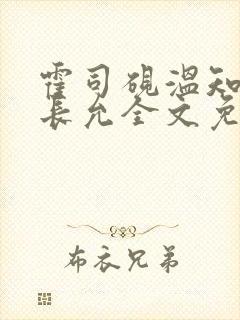 霍司砚温知
长允全文免
布衣兄弟